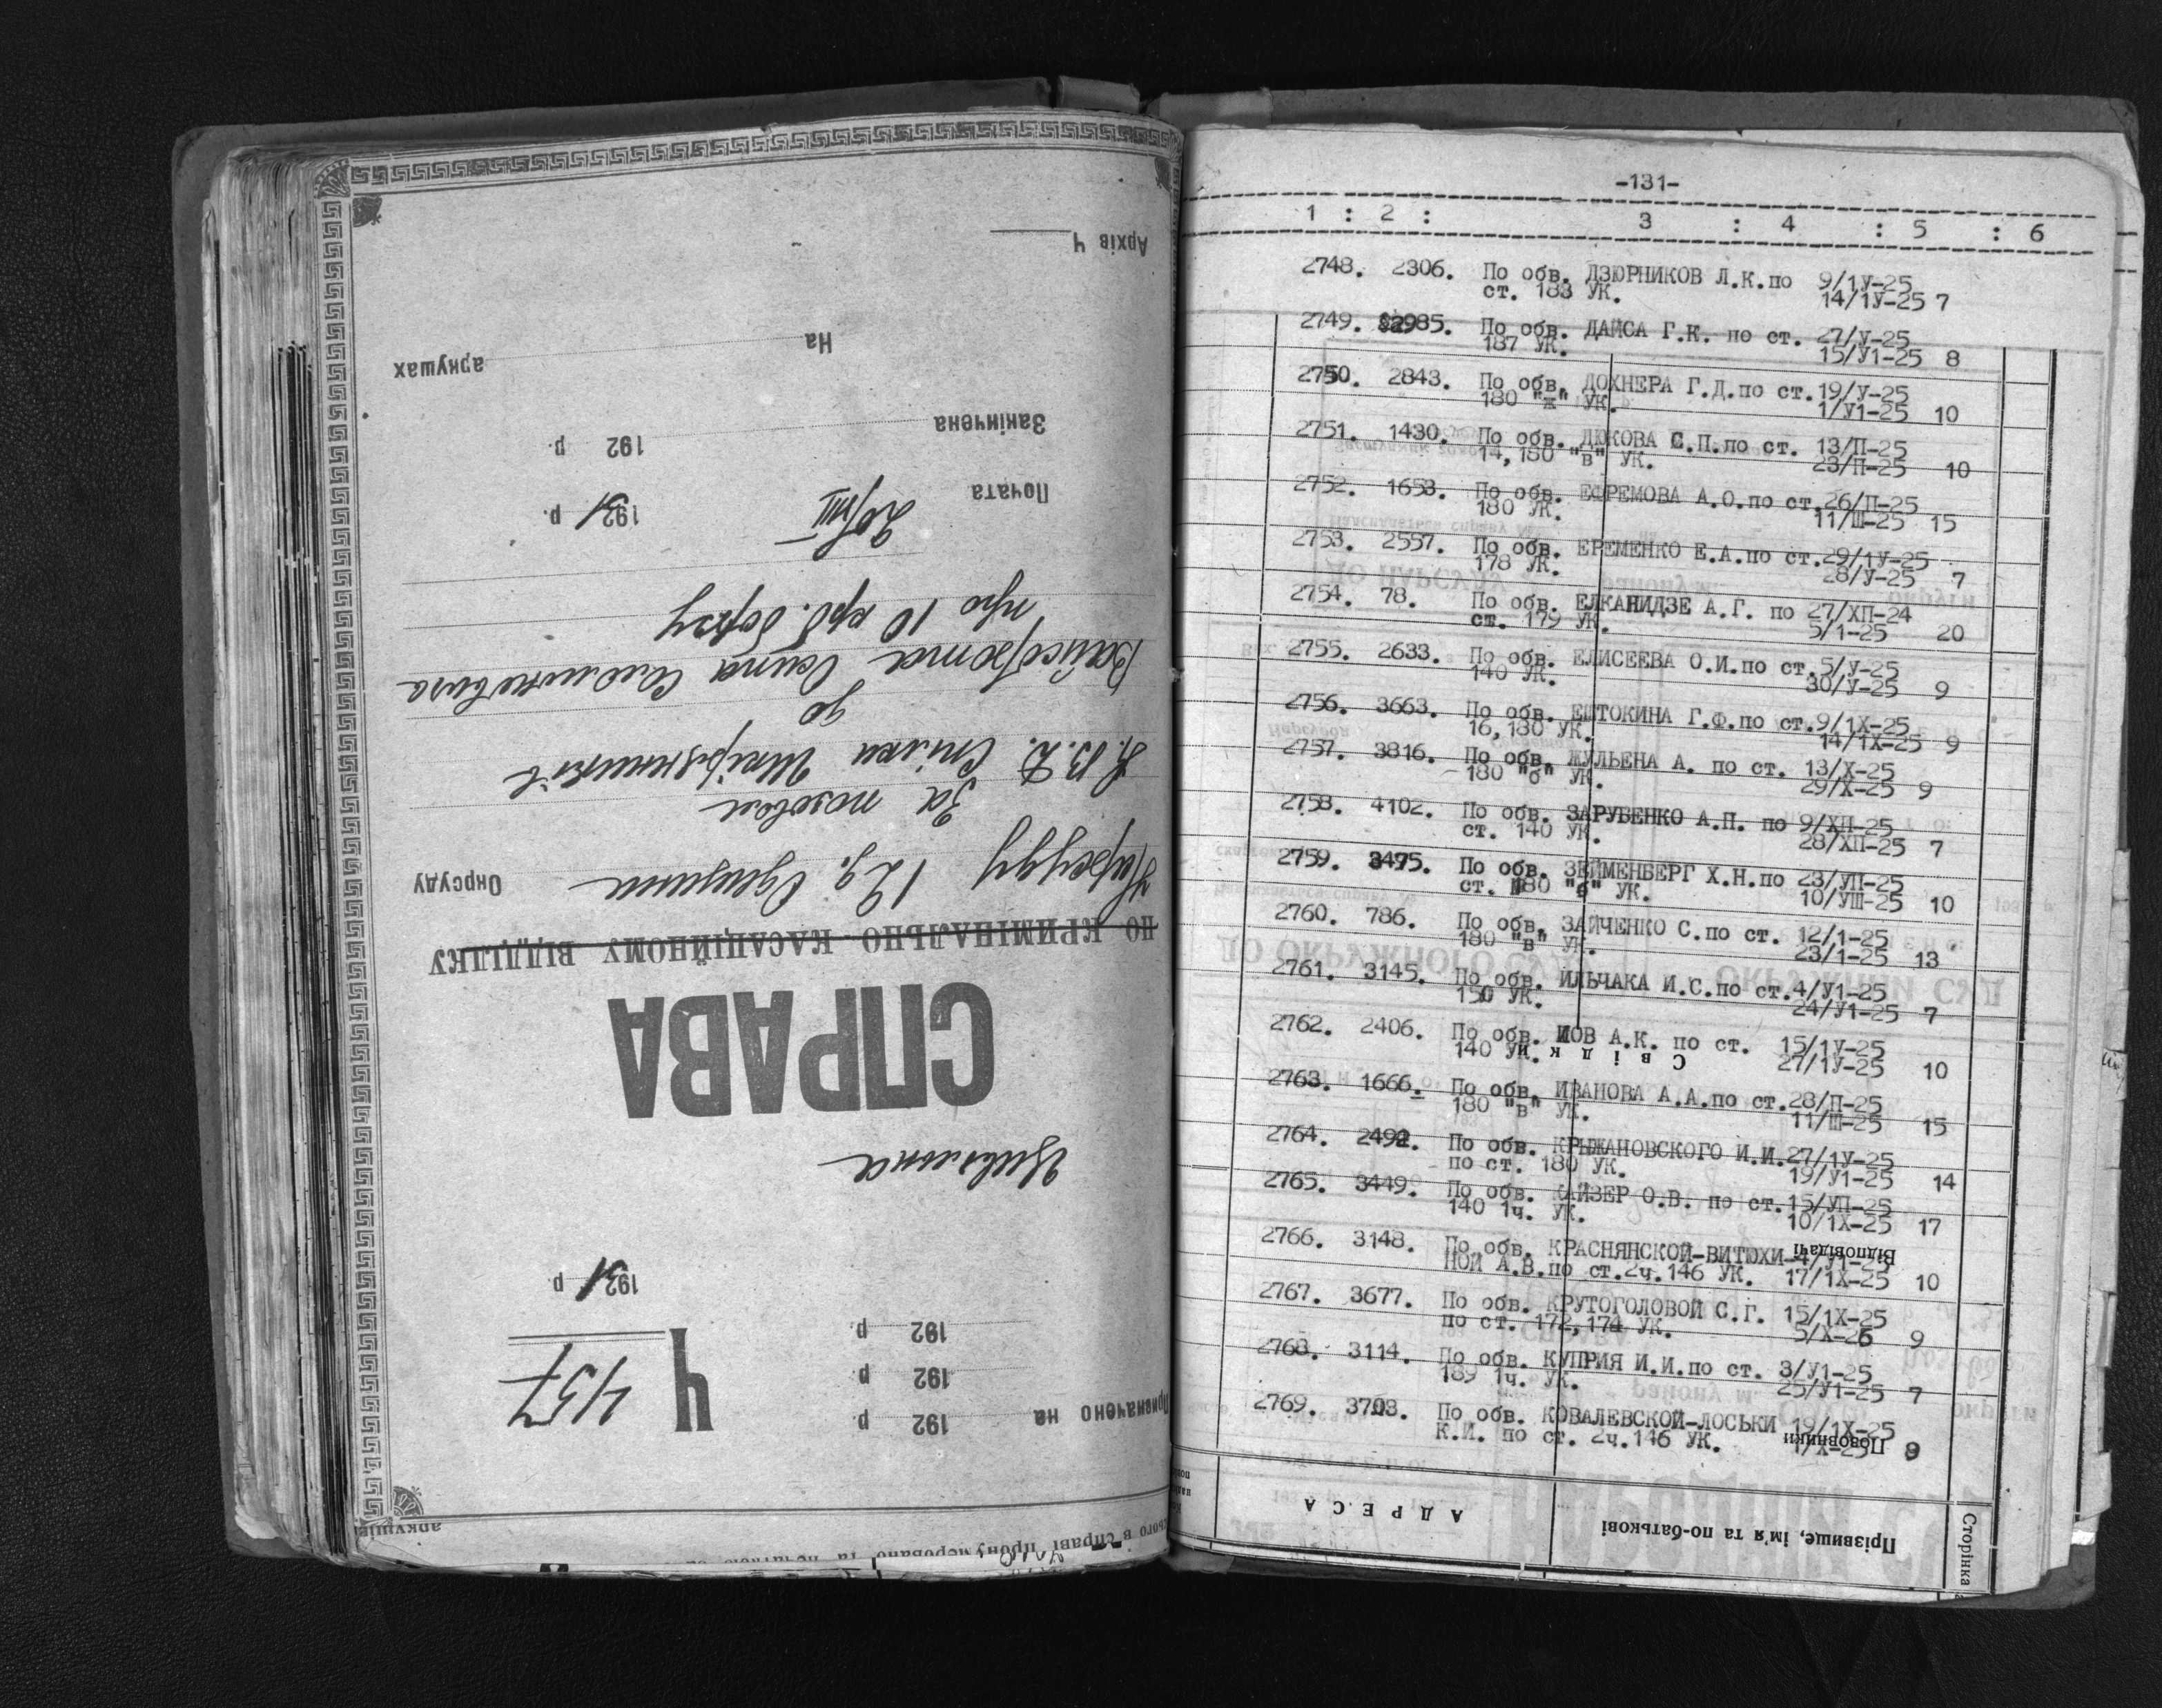 Призначено на 192 р.
192 р.
192 р.
Ч 457
1931 р.
Цивільна
СПРАВА
ПО КРИМІНАЛЬНО-КАСАЦІЙНОМУ ВІДДІЛКУ
Нарсуду 12 д. Одещини Окрсуду
За позовом
Спілки
до
Вайсброта
про 10 крб. боргу
Почата 20/VIII 1931 р.
Закінчена 192 р.
На аркушах
Архів Ч
-131-
1 : 2 : 3 : 4 : 5 : 6
2748. 2306. По обв. ДЗЮРНИКОВ Л.К.по 9/1У-25
ст. 183 УК. 14/1У-25 7
2749. 2985. По обв. ДАЙСА Г.К. по ст. 27/У-25
187 УК. 15/У1-25 8
2750. 2843. По обв. ДОХНЕРА Г.Д.по ст.19/У-25
180 "ж" УК. 1/У1-25 10
2751. 1430. По обв. ДЮКОВА С.П.по ст. 13/П-25
14,180 "в" УК. 23/П-25 10
2752. 1653. По обв. ЕФРЕМОВА А.О.по ст.26/П-25
180 УК. 11/Ш-25 15
2753. 2557. По обв. ЕРЕМЕНКО Е.А.по ст.29/1У-25
178 УК. 28/У-25 7
2754. 78. По обв. ЕЛКАНИДЗЕ А.Г. по 27/ХП-24
ст. 179 УК. 5/1-25 20
2755. 2633. По обв. ЕЛИСЕЕВА О.И.по ст.5/У-25
140 УК. 30/У-25 9
2756. 3663. По обв. ЕШТОКИНА Г.Ф.по ст.9/1Х-25
16,180 УК. 14/1Х-25 9
2757. 3816. По обв. ЖУЛЬЕНА А. по ст. 13/Х-25
180 "б" УК. 29/Х-25 9
2758. 4102. По обв. ЗАРУБЕНКО А.П. по 9/ХП-25
ст. 140 УК. 28/ХП-25 7
2759. 3495. По обв. ЗЕЙМЕНБЕРГ Х.Н.по 23/УП-25
ст. 180 "б" УК. 10/УШ-25 10
2760. 786. По обв. ЗАЙЧЕНКО С.по ст. 12/1-25
180 "в" УК. 23/1-25 13
2761. 3145. По обв. ИЛЬЧАКА И.С.по ст.4/У1-25
150 УК. 24/У1-25 7
2762. 2406. По обв. ИОВ А.К. по ст. 15/1У-25
140 УК. 27/1У-25 10
Свідки
2763. 1666. По обв. ИВАНОВА А.А.по ст.28/П-25
180 "в" УК. 11/Ш-25 15
2764. 2492. По обв. КРЫЖАНОВСКОГО И.И.27/1У-25
по ст. 180 УК. 19/У1-25 14
2765. 3449. По обв. КАЙЗЕР О.В. по ст.15/УП-25
140 1ч. УК. 10/1Х-25 17
Відповідачі
2766. 3148. По обв. КРАСНЯНСКОЙ-ВИТЮХИ-4/У1-25
НОЙ А.В.по ст.2ч.146 УК. 17/1Х-25 10
2767. 3677. По обв. КРУТОГОЛОВОЙ С.Г. 15/1Х-25
по ст. 172,174 УК. 5/Х-26 9
2768. 3114. По обв. КУПРИЯ И.И.по ст. 3/У1-25
189 1ч. УК. 25/У1-25 7
2769. 3703. По обв. КОВАЛЕВСКОЙ-ЛОСЬКИ 19/1Х-25
К.И. по ст. 2ч.146 УК. 1/Х-25 9
Позовники
АДРЕСА
Прізвище, ім'я та по-батькові
Сторінка